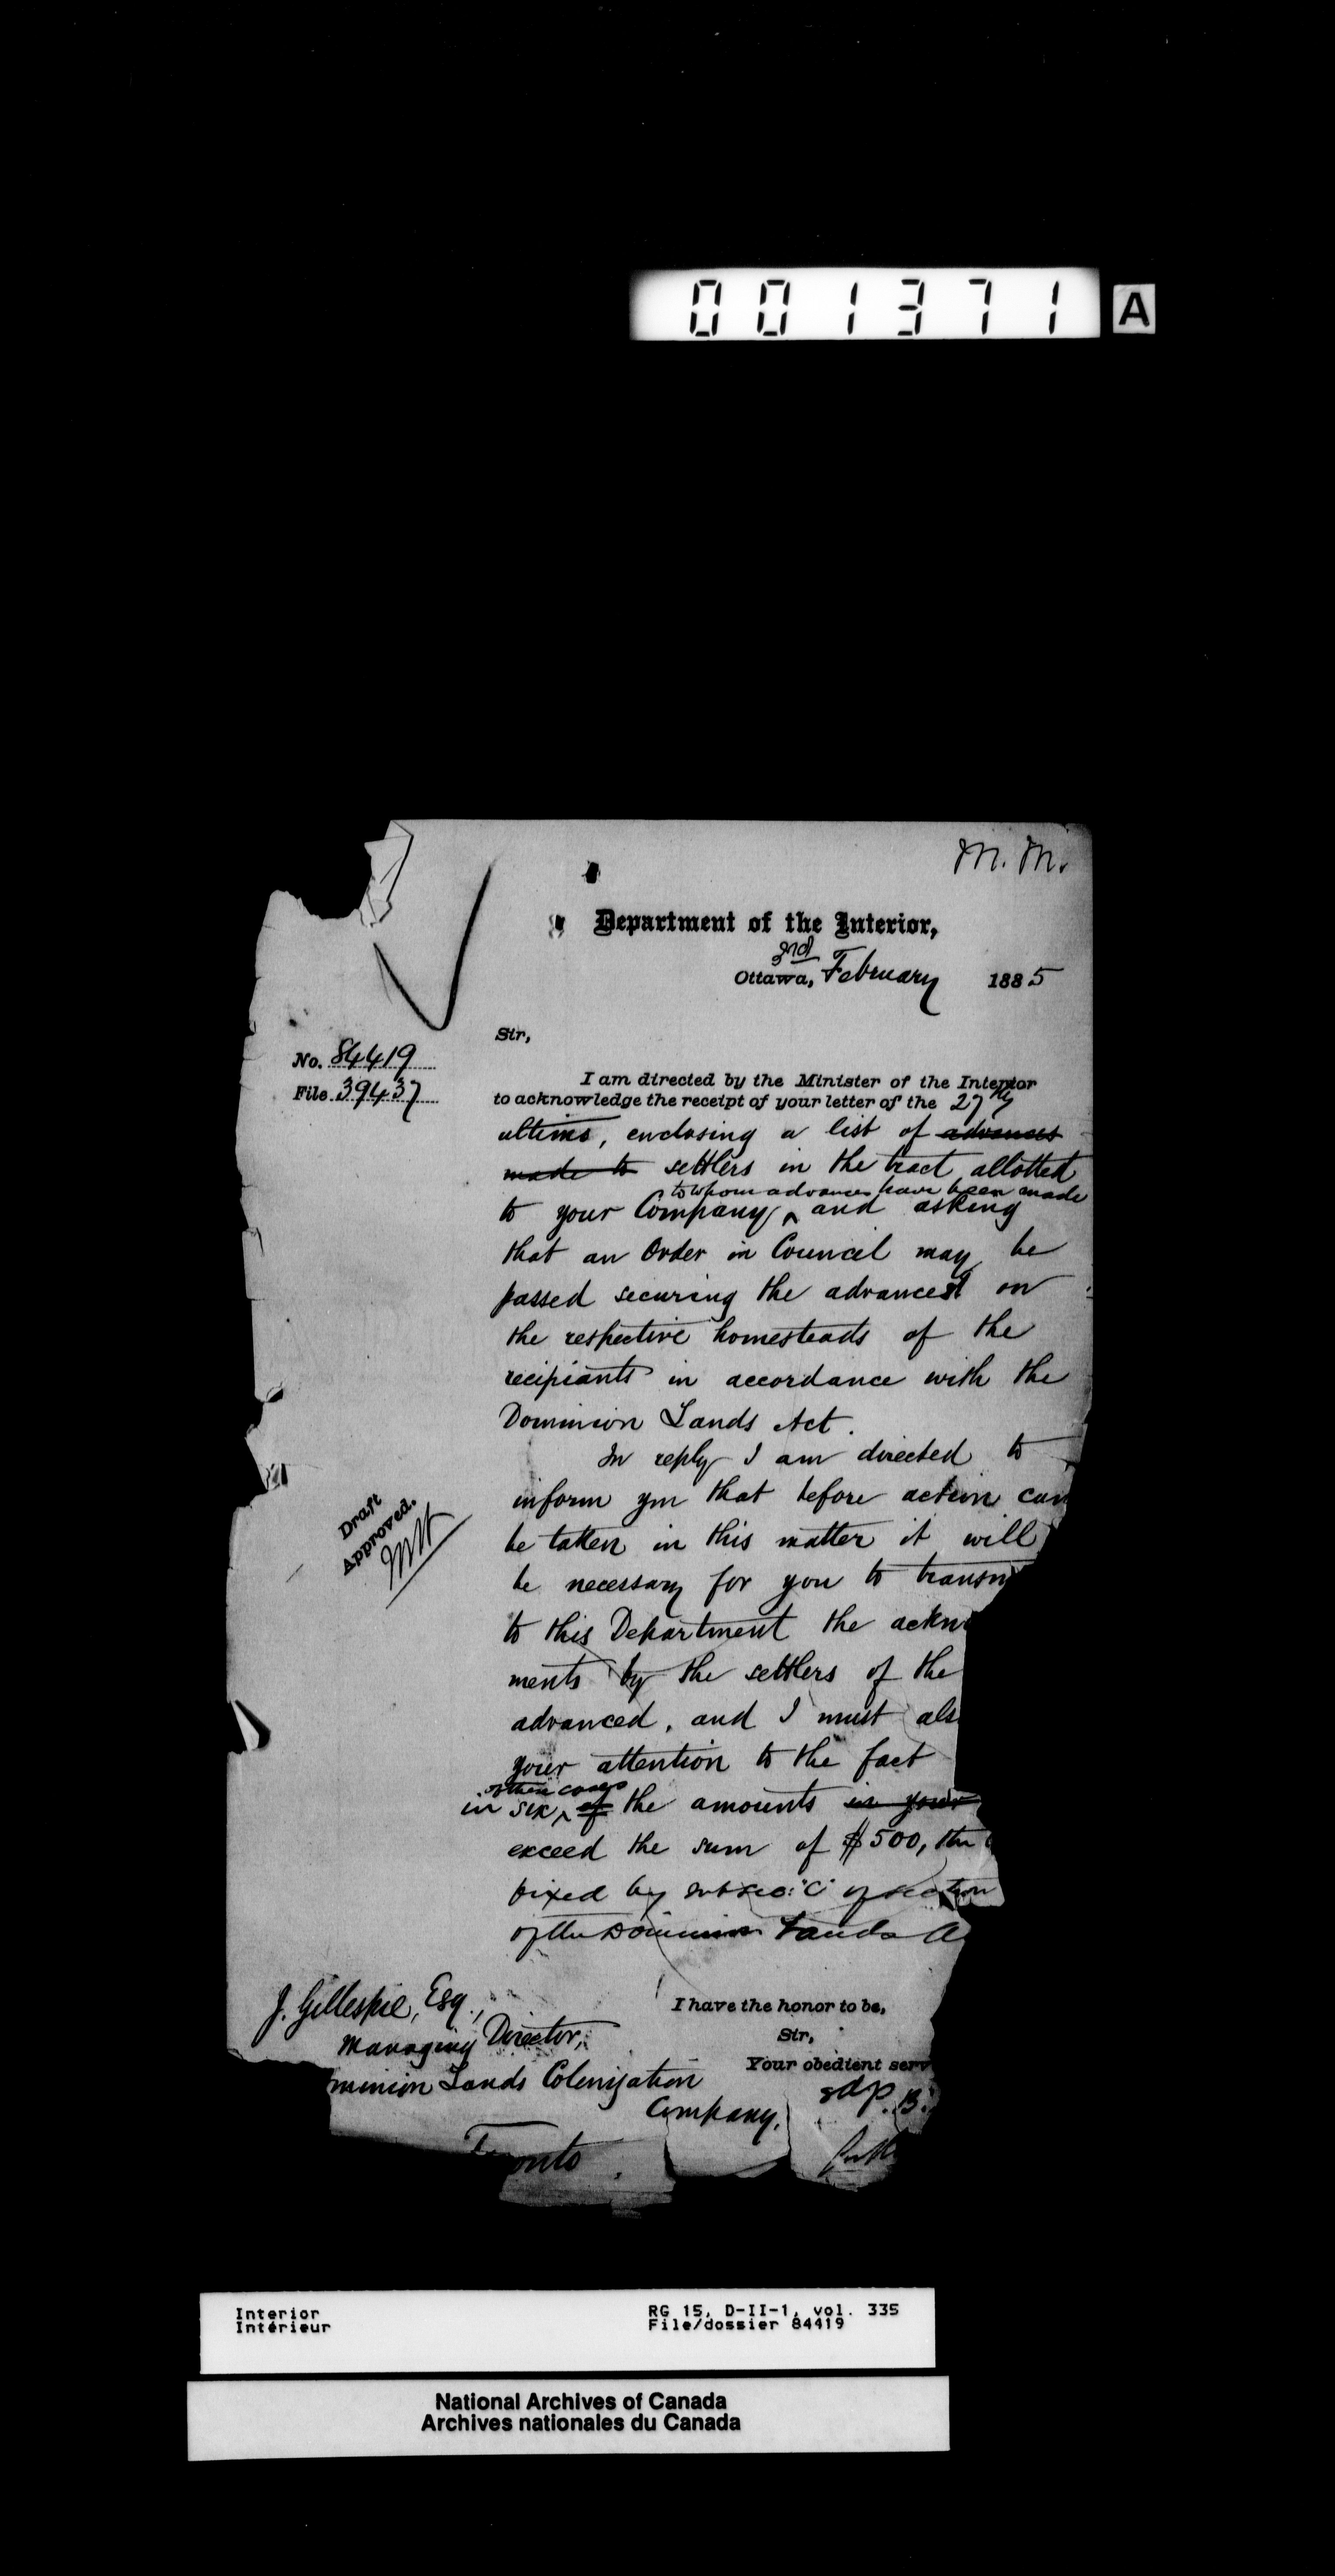 001371 A
M. M.
Department of the Interior,
3rd
Ottawa, February 1885
Sir,
No. 84419
File 39437
I am directed by the Minister of the Interior
to acknowledge the receipt of your letter of the 27th
ultimo, enclosing a list of advances
made to settlers in the tract allotted
to whom advances have been made
to your Company, ^ and asking
that an Order in Council may be
passed securing the advances on
the respective homesteads of the
recipiants in accordance with the
Dominion Lands Act.
In reply I am directed to
inform you that before action can
be taken in this matter it will
be necessary for you to transm
to this Department the ackn
ments by the settlers of the
advanced, and I must als
your attention to the fact
of these cases
in six ^ of the amounts in your
exceed the sum of $500, the
fixed by subsec: "C" of section
of the Dominion Lands A
Draft
Approved.
I have the honor to be,
Sir,
Your obedient serv
J. Gillespie, Esq.,
Managing Director,
minion Lands Colonization
Company,
Toronto.
Interior
Intérieur
RG 15, D-II-1, vol. 335
File/dossier 84419
National Archives of Canada
Archives nationales du Canada